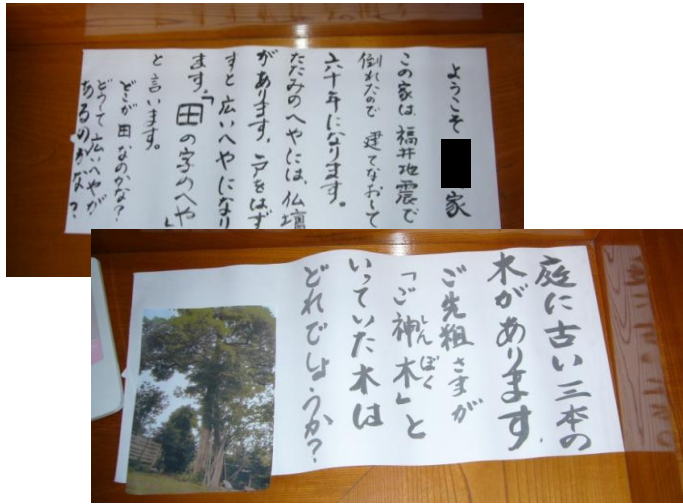 ようこそ 家
この家は、福井地震で
倒れたので 建てなおして
六十年になります。
たたみのへやには、仏壇
があります。戸をはず
すと広いへやになり
ます。「田の字のへや」
と言います。
どこが 田 なのかな?
どうして 広いへやが
あるのかな?
庭に古い三本の
木があります。
ご先祖さまが
「ご神木」と
しんぼく
いっていた木は
どれでしょうか?